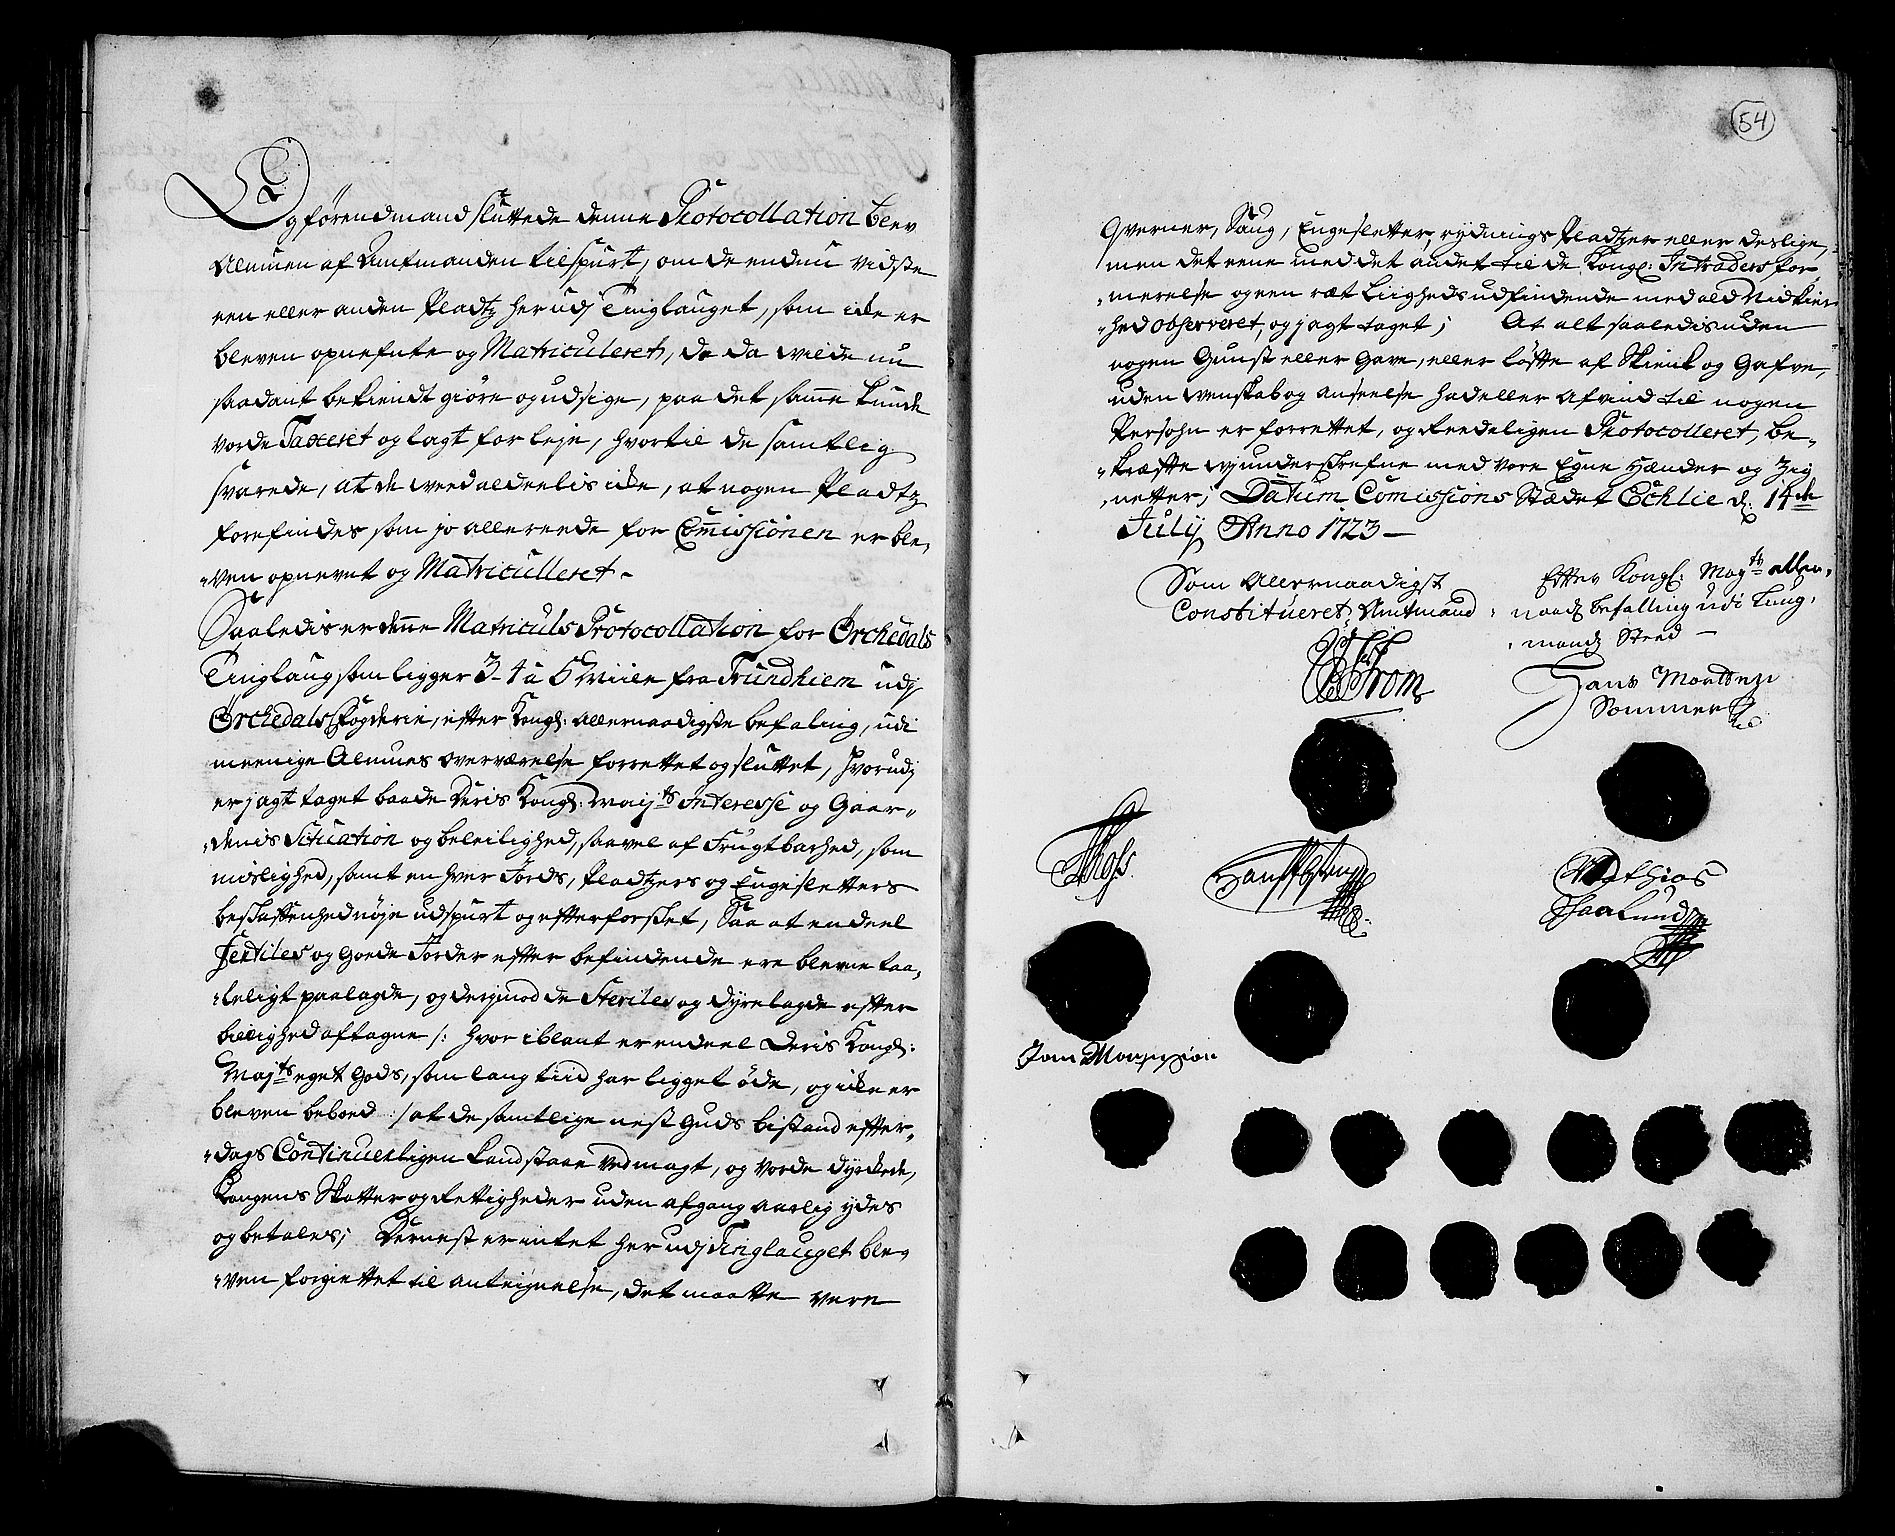 Og førendmand sluttede denne Protocollation blev
Almuen af Amtmanden tilspurt, om de endnu vidste
een eller anden Pladtz her udj Tinglauget, som icke er
bleven opnefnte og Matriculeret, da da wilde nu
saadant bekiendt giøre og udsige, paa det samme kunde
vorde Taxeret og lagt for leje, hvortil de samtlig
svarede, at de weed aldeelis icke, at nogen Pladtz
forefindes som jo allereede for Commissionen er ble,
,,ven opnevnt og Matriculleret -
Saaledis er denne Matriculs Protocollation for Ørchedals
Tinglaug som ligger 3. 4 a 5 Miile fra Trundhiem udj
Ørchedals fogderie, efter Kongl: allernaadigste befaling, udi
meenige Almues overværelse forrettet og sluttet, hvorudj
er jagt taget baade Deris Kongl: Maijts Interesse og Gaar,,
,,denis Situation og beleilighed, saavel af Frugtbarhed, som
mislighed, samt en hver Jords, Pladtzers og Engesletters
beskaffenhed nøje udspurt og efterforsket, Saa at endeel
Fertiles og goede Jorder efter befindende ere blevne taa,
,,leligt paalagde, og derimod de Steriles og dyrelagde efter
billighed aftagne /: hvor iblant er endeel Deris Kongl:
Majts eget Gods, som lang tiid har ligget øde, og icke er
bleven beboed :/ at de samtlige nest Guds bistand efter,,
,,dags Continuerligen kand staae ved magt, og vorde dyrckede,
Kongens Skatter og Rettigheder uden afgang aarlig ydes
og betales; Dernest er intet her udj Tinglauget ble,
,,ven forgiettet til anteignelse, det maatte være
54
Qverner, Saug, Engesletter, rydnings Pladtzer eller deslige,
men det eene med det andet til de Kongl: Intraders for
,,merelse og een ræt Liigheds udfindende med ald Vidkier
,,hed observeret, og jagt taget; At alt saaledis uden
nogen Gunst eller Gave, eller løfte af Skienk og Gafve,
uden wenskab og anseelse had eller Afvind til nogen
Persohn er forrettet, og Reedeligen Protocolleret, be,,
,,kræfte wj underskrefne med vore Egne Hænder og Zig
,,netter; Datum Comissions Stædet Echlie d: 14de
Julij Anno 1723 -
Som Allernaadigst
Constitueret Amtmand
Efter Kongl: Mayts aller,
,,naads befalling udi Laug,
,,mands Sted -
Strom
Hans Mortten
Sommer
Mathias
Jon Monssøn